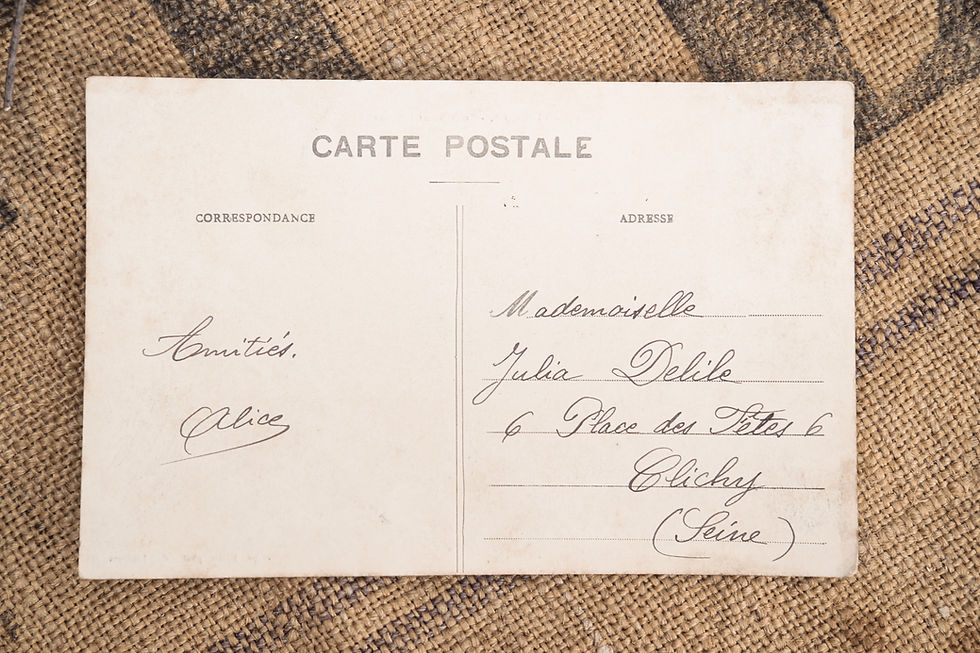 CARTE POSTALE
CORRESPONDANCE
Amitiés.
Alice
ADRESSE
Mademoiselle
Julia Delile
6 Place des Fêtes 6
Clichy
(Seine)